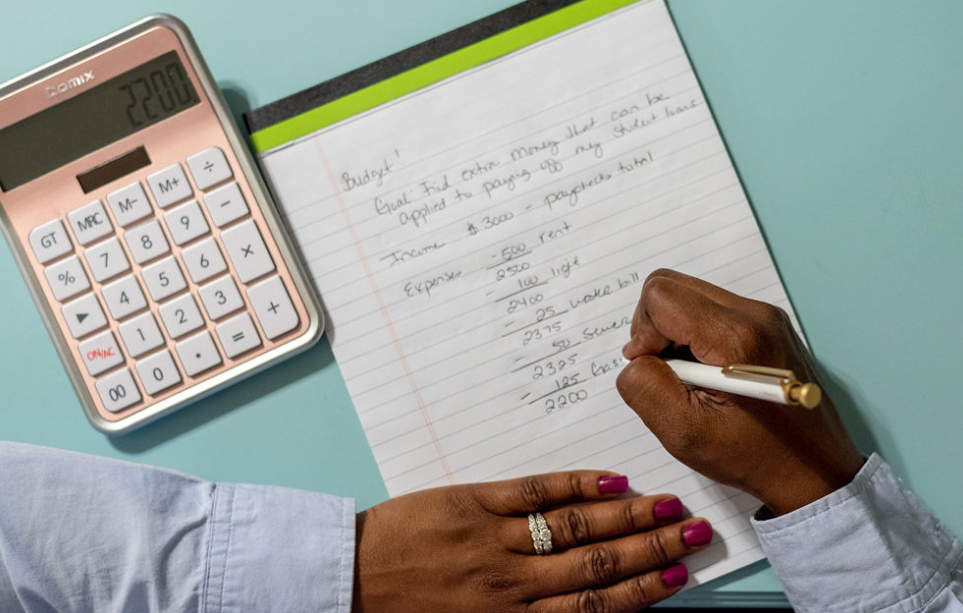 comix
2200
GT MRC M- M+ ÷
% 7 8 9 −
▶ 4 5 6 ×
ON/AC 1 2 3 +
00 0 . =
Budget
Goal: Find extra money that can be
applied to paying off my student loans
Income $3000 - paychecks total
Expenses - 500 rent
2500
- 100 light
2400
- 25 water bill
2375
- 50 sewer
2325
- 125 Gas
2200